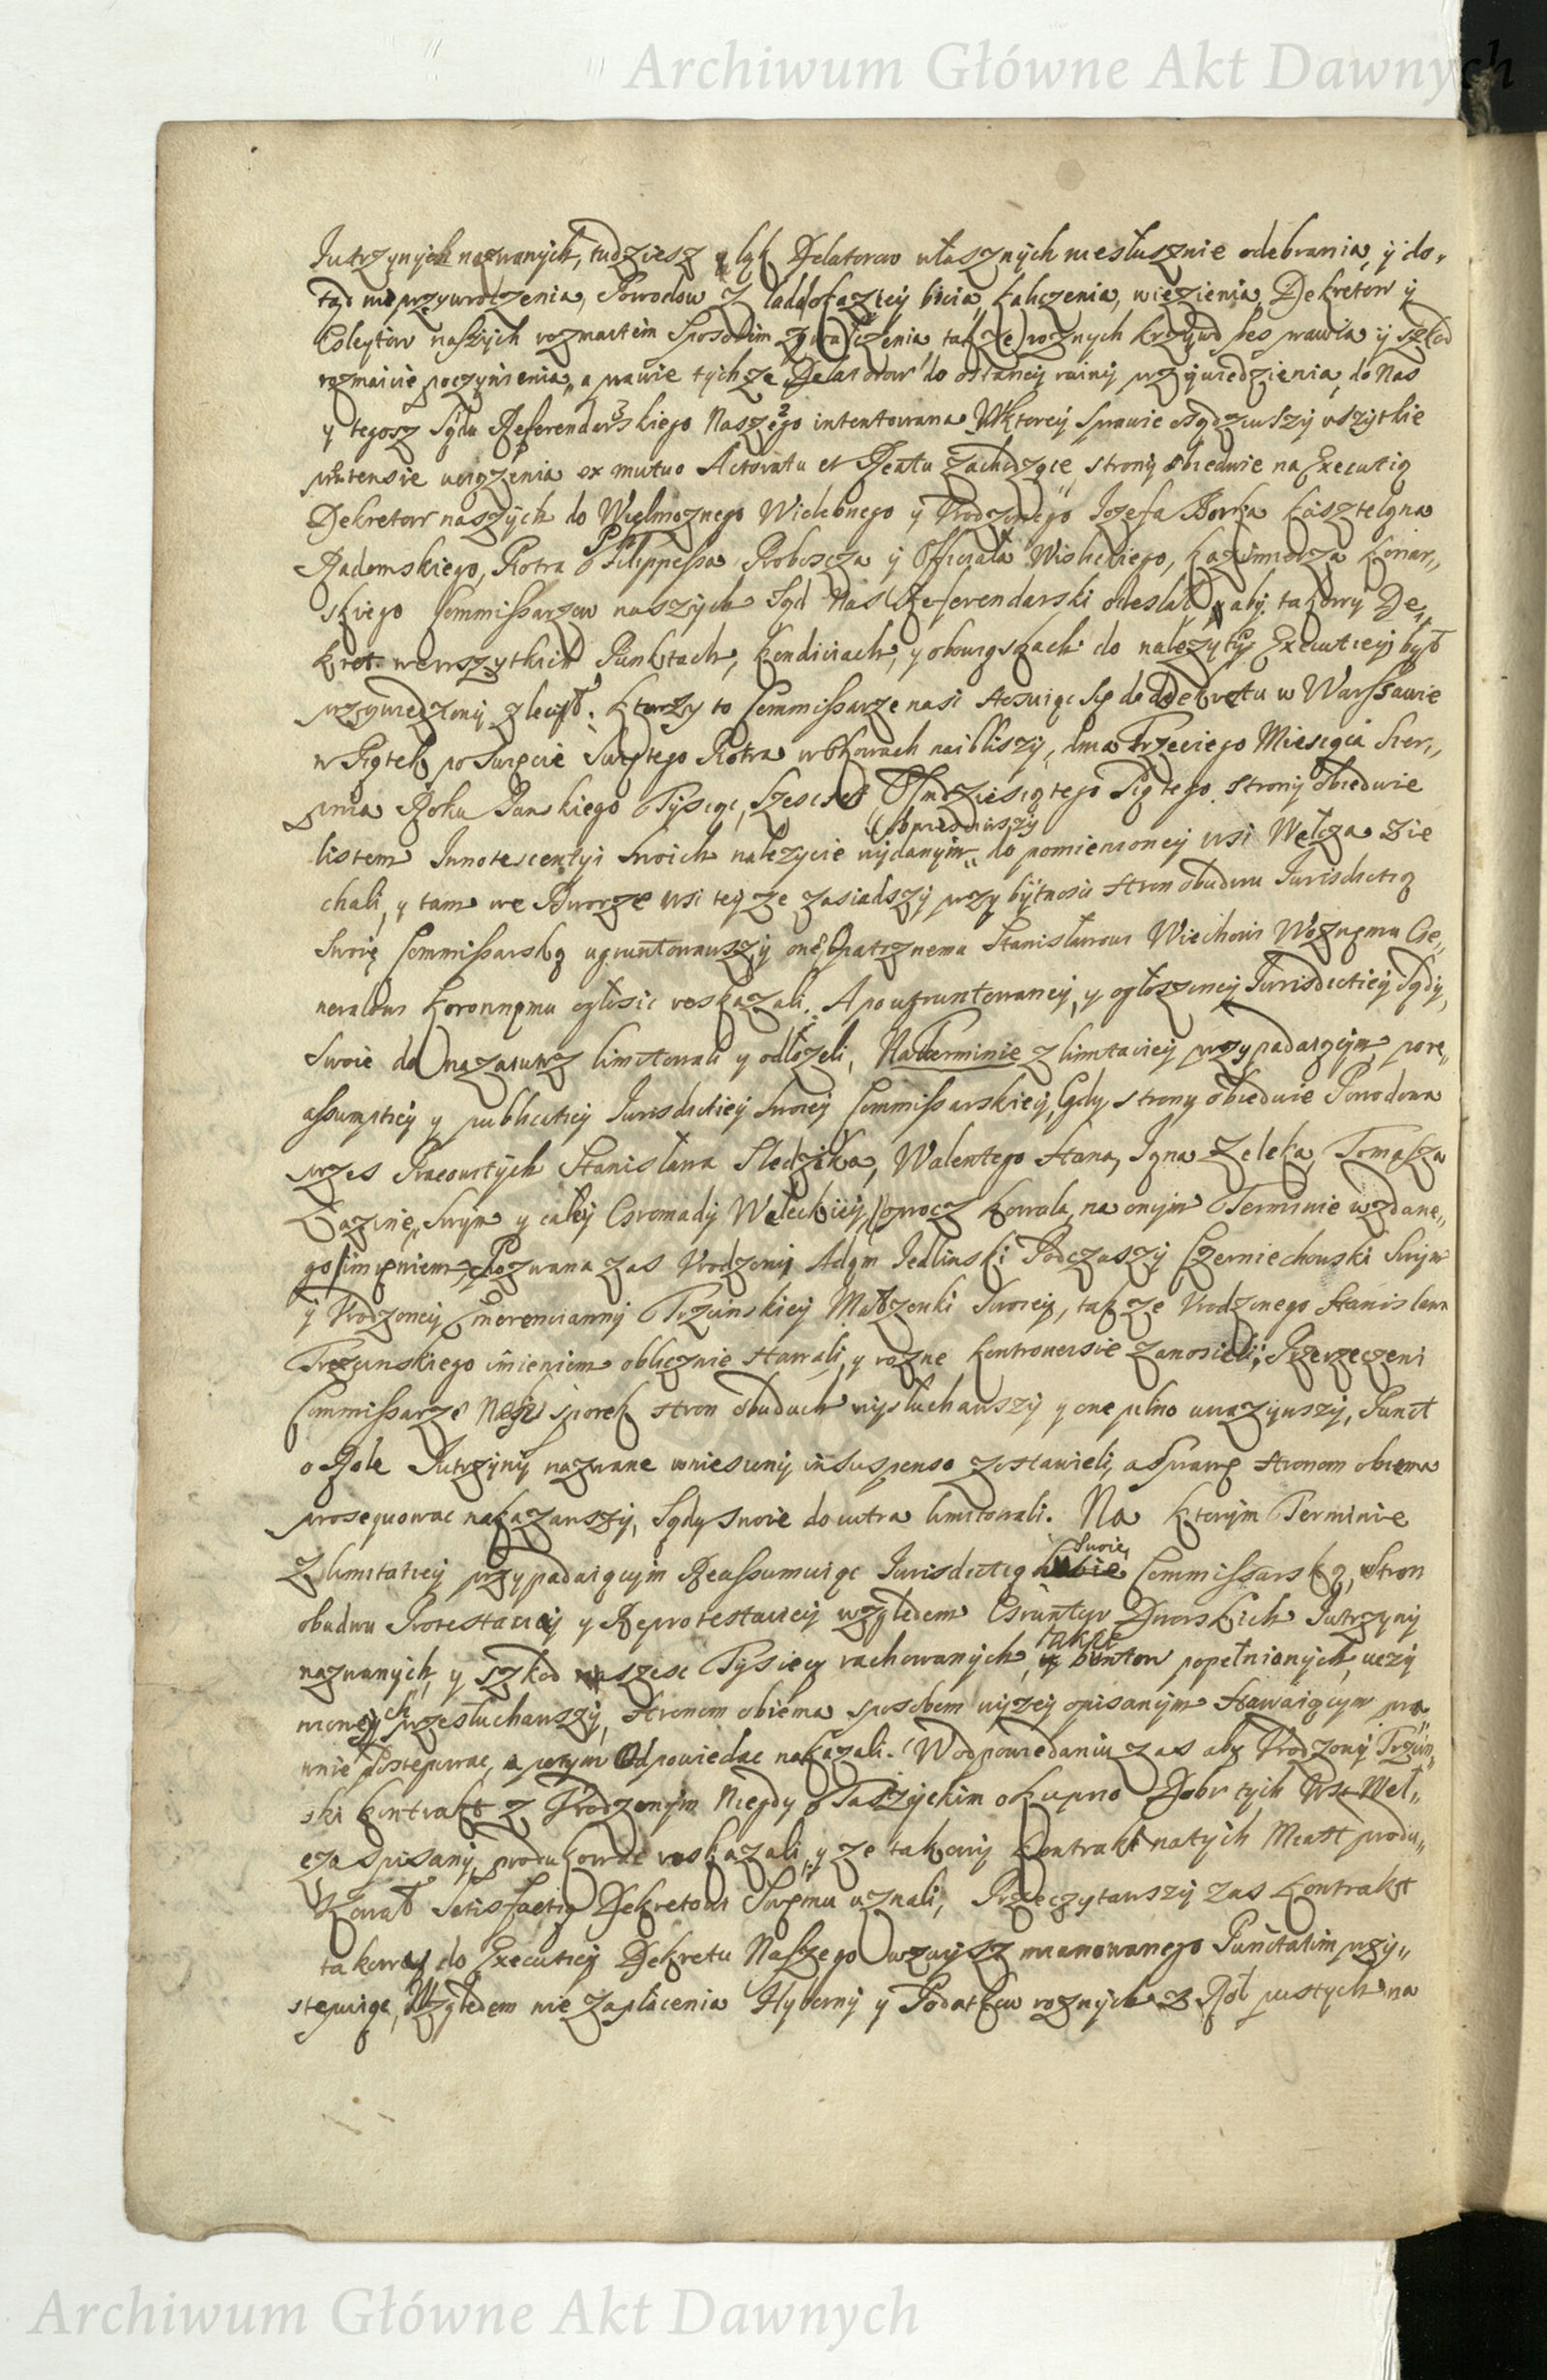 Archiwum Główne Akt Dawnych
Jutrzynych nazwanych, tudziesz y łąk Delatorow własznych niesłusznie odebrania, y do-
tąd nieprzywroczenia, Powodow z lada okaziey bicia, kaliczenia, wiezienia, Dekretow y
Gleytow naszych rozmaitem sposobem zgwałczenia, takze roznych krzywd bes prawia y szkod
rozmaicie poczynienia, a prawie tychze Delatorow do ostatniey ruiny przywiedzienia, do Nas
y tegosz Sądu Referendarskiego Naszego intentowana. Wktorey sprawie osądziwszy wszytkie
praetensie uciązenia ex mutuo Actoratu et Reatu zachodzące, strony obiedwie na Executią
Dekretow naszych do Wielmoznego Wielebnego y Urodzonego Jozefa Borka Kasztelana
Radomskiego, Piotra Philippessa Proboscza y Officiała Wislickiego, Kazimierza Koniar-
skiego Commissarzow naszych Sąd Nasz Referendarski odesłał, y aby takowy De-
kret wewszytkich Punktach, Kondiciach, y obowąskach do nalezytey Executiey był
przywiedziony zlecił. Ktorzy to Commissarze nasi stosuiąc się do dekretu w Warszawie
w Piątek po Swięcie Swiętego Piotra w Okowach naibliszy, dnia Trzeciego Miesiąca Sier-
pnia Roku Panskiego Tysiąc, Szescset Osmdziesiątego Piątego strony obiedwie
obwiesciwszy
listem Innotescentyi swoich nalezycie wydanym do pomienioney wsi Wełcza zie
chali, y tam we Dworze wsi teyze zasiadszy przy bytnosci stron obudwu Jurisdictią
Swoię Commissarską ugruntowawszy onę Opatrznemu Stanisławowi Wiechowi Woznemu Ge-
nerałowi Koronnemu ogłosic roskazali. A po ugruntowaney, y ogłoszoney Jurisdictiey Sądy
Swoie do nazaiutrz limitowali y odłozeli, Na Terminie z limitaciey przypadaiącym, po re-
assumptiey y publicatiey Jurisdictiey swoiey Commissarskiey, Gdy strony obiedwie Powodowa
przes Pracowitych Stanisława Sledzika, Walentego Stana, Igna Zeleka, Tomasza
swym y całey Gromady Wełeckiey, (oprocz Kowala, na onym Terminie wzdane-
go) imieniem, Pozwana zas Urodzony Adam Jedlinski Podczaszy Czerniechowski Swym
y Urodzoney Emerencianny Trzcinskiey Małzonki Swoiey, takze Urodzonego Stanisława
Trzcinskiego imieniem oblicznie stawali, y rozne kontrowersie zanosieli; Przerzeczeni
Commissarze Nasi sporek stron obuduch wysłuchawszy y one pilno uwazywszy, Punct
o Role Jutrzyny nazwane wniesiony in suspenso zostawieli, a sprawę stronom obiema
prosequowac nakazawszy, Sądy swoie do iutra limitowali. Na ktorym Terminie
Swoię
z limitatiey przypadaiącym Reassumuiąc Jurisdictią Commissarską, stron
obudwu Protestaciey y Reprotestaciey względem Gruntow Dworskich Jutrzyny
takze
nazwanych, y szkod na szesc Tysiecy rachowanych, y buntow popełnionych, uczy
nionych przesłuchawszy, stronom obiema sposobem wyzey opisanym stawaiącym pra-
wnie postepowac, a potym Odpowiedac nakazali. W odpowiedaniu zas aby Urodzony Trzcin-
ski kontrakt z Urodzonym Niegdy Taszyckim o kupno Dobr tych Wsi Weł-
cza spisany produkowac roskazali, y ze takowy Kontrakt natych Miast produ-
kował Satisfactią Dekretowi Swemu uznali, Przeczytawszy zas Kontrakt
takowy do Executiey Dekretu Naszego wzwysz mianowanego Punctatim przy-
stempuiąc, Względem nie zapłacenia Hyberny y Podatkow roznych z Rol pustych na
Archiwum Główne Akt Dawnych